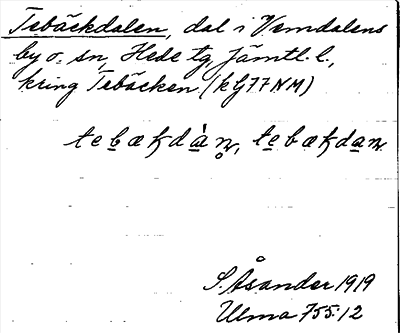 Tebäckdalen, dal i Vemdalens
by o. sn, Hede tg, Jämtl. l.,
kring Tebäcken (kG77NM)
S. Åsander 1919
Ulma 755:12